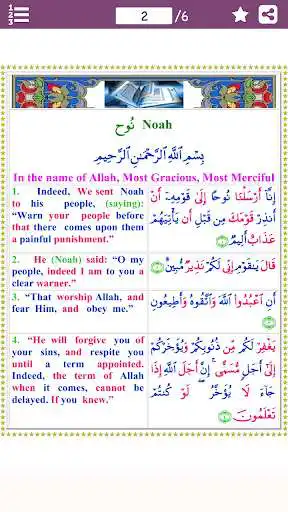 1
2
3
2 /6
نُوح Noah
بِسْمِ اللَّهِ الرَّحْمَٰنِ الرَّحِيمِ
In the name of Allah, Most Gracious, Most Merciful
1. Indeed, We sent Noah
to his people, (saying):
"Warn your people before
that there comes upon them
a painful punishment."
إِنَّآ أَرْسَلْنَا نُوحًا إِلَىٰ قَوْمِهِۦٓ أَنْ
أَنذِرْ قَوْمَكَ مِن قَبْلِ أَن يَأْتِيَهُمْ
عَذَابٌ أَلِيمٌ ﴿١﴾
2. He (Noah) said: "O my
people, indeed I am to you a
clear warner."
قَالَ يَٰقَوْمِ إِنِّى لَكُمْ نَذِيرٌ مُّبِينٌ ﴿٢﴾
3. "That worship Allah, and
fear Him, and obey me."
أَنِ ٱعْبُدُوا۟ ٱللَّهَ وَٱتَّقُوهُ وَأَطِيعُونِ
﴿٣﴾
4. "He will forgive you of
your sins, and respite you
until a term appointed.
Indeed, the term of Allah
when it comes, cannot be
delayed. If you knew."
يَغْفِرْ لَكُم مِّن ذُنُوبِكُمْ وَيُؤَخِّرْكُمْ
إِلَىٰٓ أَجَلٍ مُّسَمًّى ۚ إِنَّ أَجَلَ ٱللَّهِ إِذَا
جَآءَ لَا يُؤَخَّرُ ۖ لَوْ كُنتُمْ
تَعْلَمُونَ ﴿٤﴾